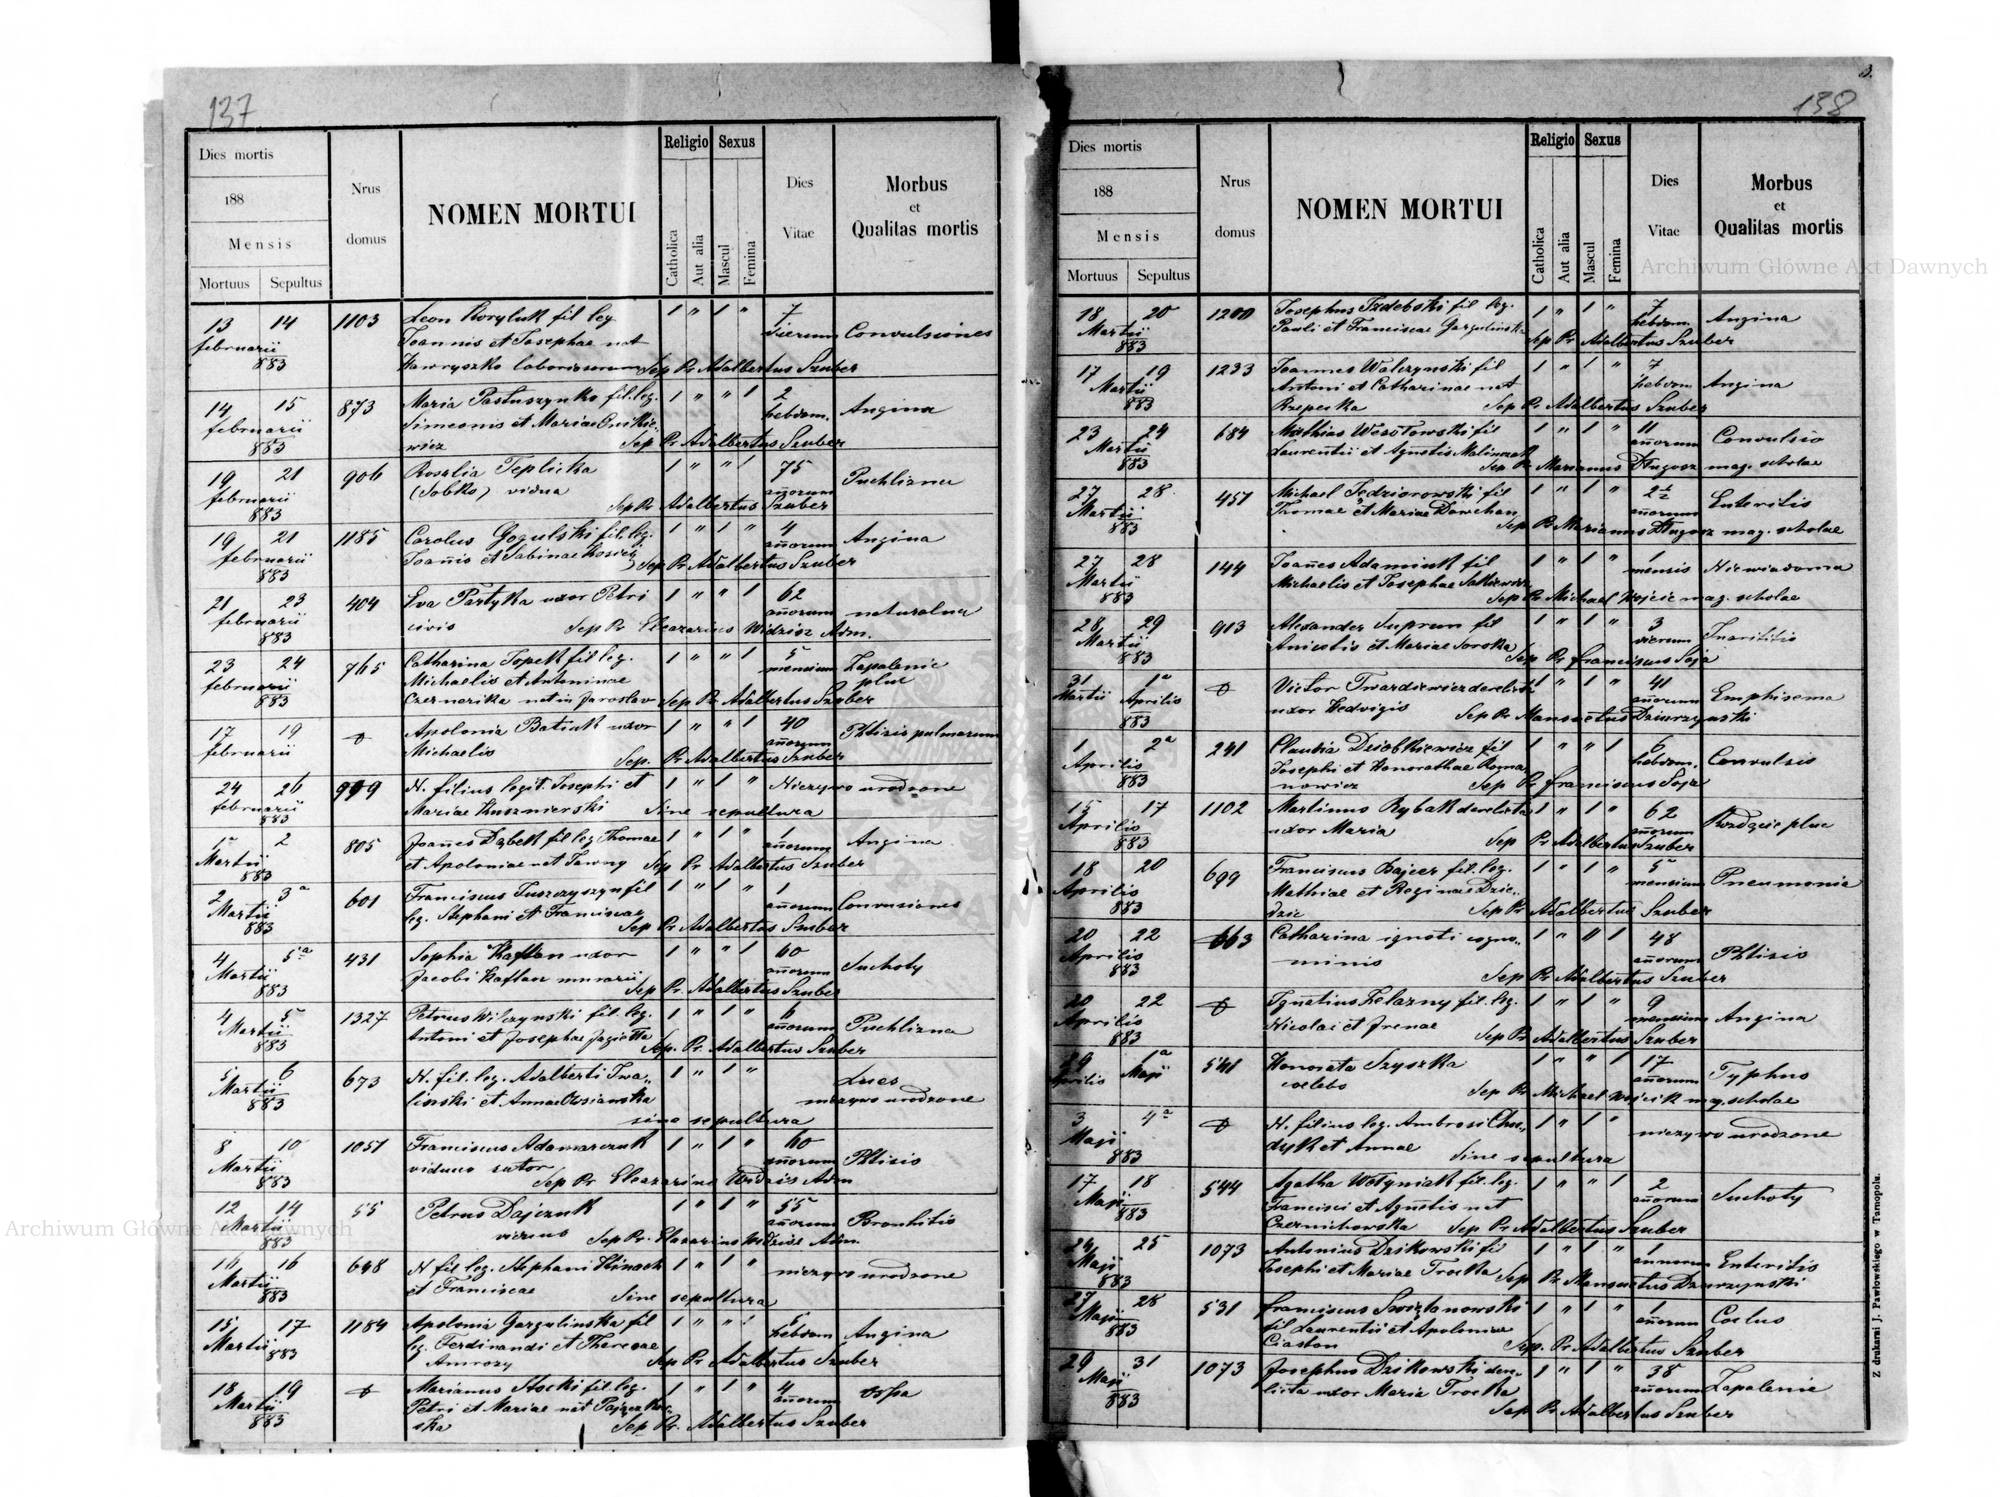 137
Dies mortis
188
Mensis
Mortuus Sepultus
Nrus domus
NOMEN MORTUI
Religio
Catholica
Aut alia
Sexus
Mascul
Femina
Dies Vitae
Morbus et Qualitas mortis
13 14 1103 Leon fil leg 1 " 1 " 7 dierum Convulsiones
februarii Joannis et Josephae nat
883 Sep Pr Adalbertus Szuber
14 15 873 Maria Pastuszynko fil. leg. 1 " " 1 2 hebdom. Angina
februarii Simeonis et Mariae
883 wicz Sep Pr Adalbertus Szuber
19 21 906 Rozalia Teplicka 1 " " 1 75 annorum Puchlizna
februarii (Sobko) vidua
883 Sep Pr Adalbertus Szuber
19 21 1185 Carolus Gogulski fil. leg. 1 " 1 " 4 annorum Angina
februarii Joannis et Sabinae
883 Sep Pr Adalbertus Szuber
21 23 404 Eva Partyka uxor Petri 1 " " 1 62 annorum naturalna
februarii civis Sep Pr Eleazarius Widzisz Adm.
883
23 24 765 Catharina Topek fil leg. 1 " " 1 5 mensium Zapalenie płuc
februarii Michaelis et Antoninae
883 nat in Jaroslav Sep Pr Adalbertus Szuber
17 19 Apolonia Batiuk uxor 1 " " 1 40 annorum Phtisis pulmorum
februarii Michaelis Sep. Pr Adalbertus Szuber
24 26 999 N. filius legit. Josephi et 1 " 1 " Nieżywo urodzone
februarii Mariae Kuszmierski Sine sepultura
883
1a 2 805 Joannes Dąbek fil leg Thomae 1 " 1 " 1 annorum Angina
Martii et Apoloniae nat Sep Pr Adalbertus Szuber
883
2 3a 601 Franciscus fil 1 " 1 " 1 annorum Convulsiones
Martii leg. Stephani et Franciscae
883 Sep Pr Adalbertus Szuber
4 5a 431 Sophia Kaftan uxor 1 " " 1 60 annorum Suchoty
Martii Jacobi Kaftan murarii
883 Sep Pr. Adalbertus Szuber
4 5 1327 Petrus Wilczynski fil. leg. 1 " 1 " 6 annorum Puchlizna
Martii Antoni et Josephae
883 Sep. Pr Adalbertus Szuber
5 6 673 N. fil. leg. Adalberti Twa- 1 " 1 " Lues
Martii linski et Annae nieżywo urodzone
883 sine sepultura
8 10 1051 Franciscus Adamarczuk 1 " 1 " 60 annorum Phtisis
Martii viduus sutor
883 Sep Pr Eleazarius Widzis Adm
12 14 55 Petrus Dajczuk 1 " 1 " 55 annorum Bronhitis
Martii viduus Sep Pr. Adm.
883
16 16 648 N fil leg. Stephani 1 " 1 " nieżywo urodzone
Martii et Franciscae Sine sepultura
883
15 17 1184 Apolonia Gargulinska fil 1 " " 1 6 hebdom Angina
Martii leg. Ferdinandi et Theresae
883 Amrozy Sep Pr Adalbertus Szuber
18 19 Marianus Stocki fil leg. 1 " 1 " 4 annorum ospa
Martii Petri et Mariae nat
883 ska Sep Pr. Adalbertus Szuber
3.
138
Dies mortis
188
Mensis
Mortuus Sepultus
Nrus domus
NOMEN MORTUI
Religio
Catholica
Aut alia
Sexus
Mascul
Femina
Dies Vitae
Morbus et Qualitas mortis
18 20 1200 Josephus Izdebski fil leg. 1 " 1 " 7 hebdom. Angina
Martii Pauli et Franciscae Gargulinska
883 Sep Pr Adalbertus Szuber
17 19 1233 Joannes Walczynski fil 1 " 1 " 7 hebdom Angina
Martii Antoni et Catharinae nat
883 Rzepecka Sep Pr Adalbertus Szuber
23 24 684 Mathias Wesołowski fil 1 " 1 " 11 annorum Convulsio
Martii Laurentii et Agnetis
883 Sep Pr Marianus Długosz mag. scholae
27 28 451 Michael Jędziorowski fil 1 " 1 " 2 1/2 annorum Enteritis
Martii Tromae et Mariae Dowchan
883 Sep Pr Marianus Długosz mag. scholae
27 28 144 Joannes Adamiuk fil 1 " 1 " 1 mensis Niewiadoma
Martii Michaelis et Josephae
883 Sep Pr Michael Wojcic mag. scholae
28 29 903 Alexander Suprun fil 1 " 1 " 3 dierum
Martii et Mariae Soroka
883 Sep Pr Franciscus Soja
31 1a Victor Twardiewicz derelicta 1 " 1 " 41 annorum Emphisema
Martii Aprilis uxor Hedvigis
883 Sep Pr Mansuetus Dziurzynski
1 2a 241 Claudia Dziobkiewicz fil 1 " " 1 6 hebdom. Convulsio
Aprilis Josephi et Honorathae Roma-
883 nowicz Sep Pr Franciscus Soja
15 17 1102 Martinus Rybak derelicta 1 " 1 " 62 annorum Rozdęcie płuc
Aprilis uxor Maria
883 Sep Pr Adalbertus Szuber
18 20 699 Franciscus Bajcer fil. leg. 1 " 1 " 5 mensium Pneumonia
Aprilis Mathiae et Reginae Dzie-
883 dzic Sep Pr Adalbertus Szuber
20 22 663 Catharina ignoti cogno- 1 " " 1 48 annorum Phtisis
Aprilis minis
883 Sep Pr Adalbertus Szuber
20 22 Ignatius Zelazny fil. leg. 1 " 1 " 9 mensium Angina
Aprilis Nicolai et Irenae
883 Sep Pr Adalbertus Szuber
29 1a 541 Honorata Szyszka 1 " " 1 17 annorum Typhus
Aprilis Maji coelebs
Sep Pr Michael Wojcik mag. scholae
3 4a N. filius leg. Ambrosi Chu- 1 " 1 " nieżywo urodzone
Maji dyk et Annae
883 Sine sepultura
17 18 544 Agatha Wołyniak fil. leg. 1 " " 1 2 annorum Suchoty
Maji Francisci et Agnetis nat
883 Czernichowska Sep Pr Adalbertus Szuber
24 25 1073 Antonius Dzikowski fi 1 " 1 " 1 annorum Enteritis
Maji Josephi et Mariae Trocka
883 Sep Pr Mansuetus Dziurzynski
27 28 531 Franciscus 1 " 1 " 1 annorum
Maji fil Laurentii et Apoloniae
883 Ciaston Sep. Pr Adalbertus Szuber
29 31 1073 Josephus Dzikowski dere- 1 " 1 " 38 annorum Zapalenie
Maji licta uxor Maria Trocka
883 Sep Pr Adalbertus Szuber
Z drukarni J. Pawłowskiego w Tarnopolu.
Archiwum Główne Akt Dawnych
Archiwum Główne Akt Dawnych